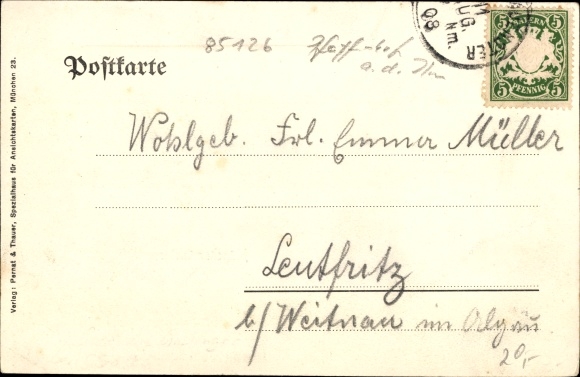 85126
Pfaff-hof.
a. d. Ilm
AUG.
Nm.
08
BAYERN
5 5
5 PFENNIG 5
Postkarte
Wohlgeb. Frl. Emma Müller
Leutfritz
b/ Weitnau im Algäu.
20,-
Verlag: Pernat & Thauer, Spezialhaus für Ansichtskarten, München 23.